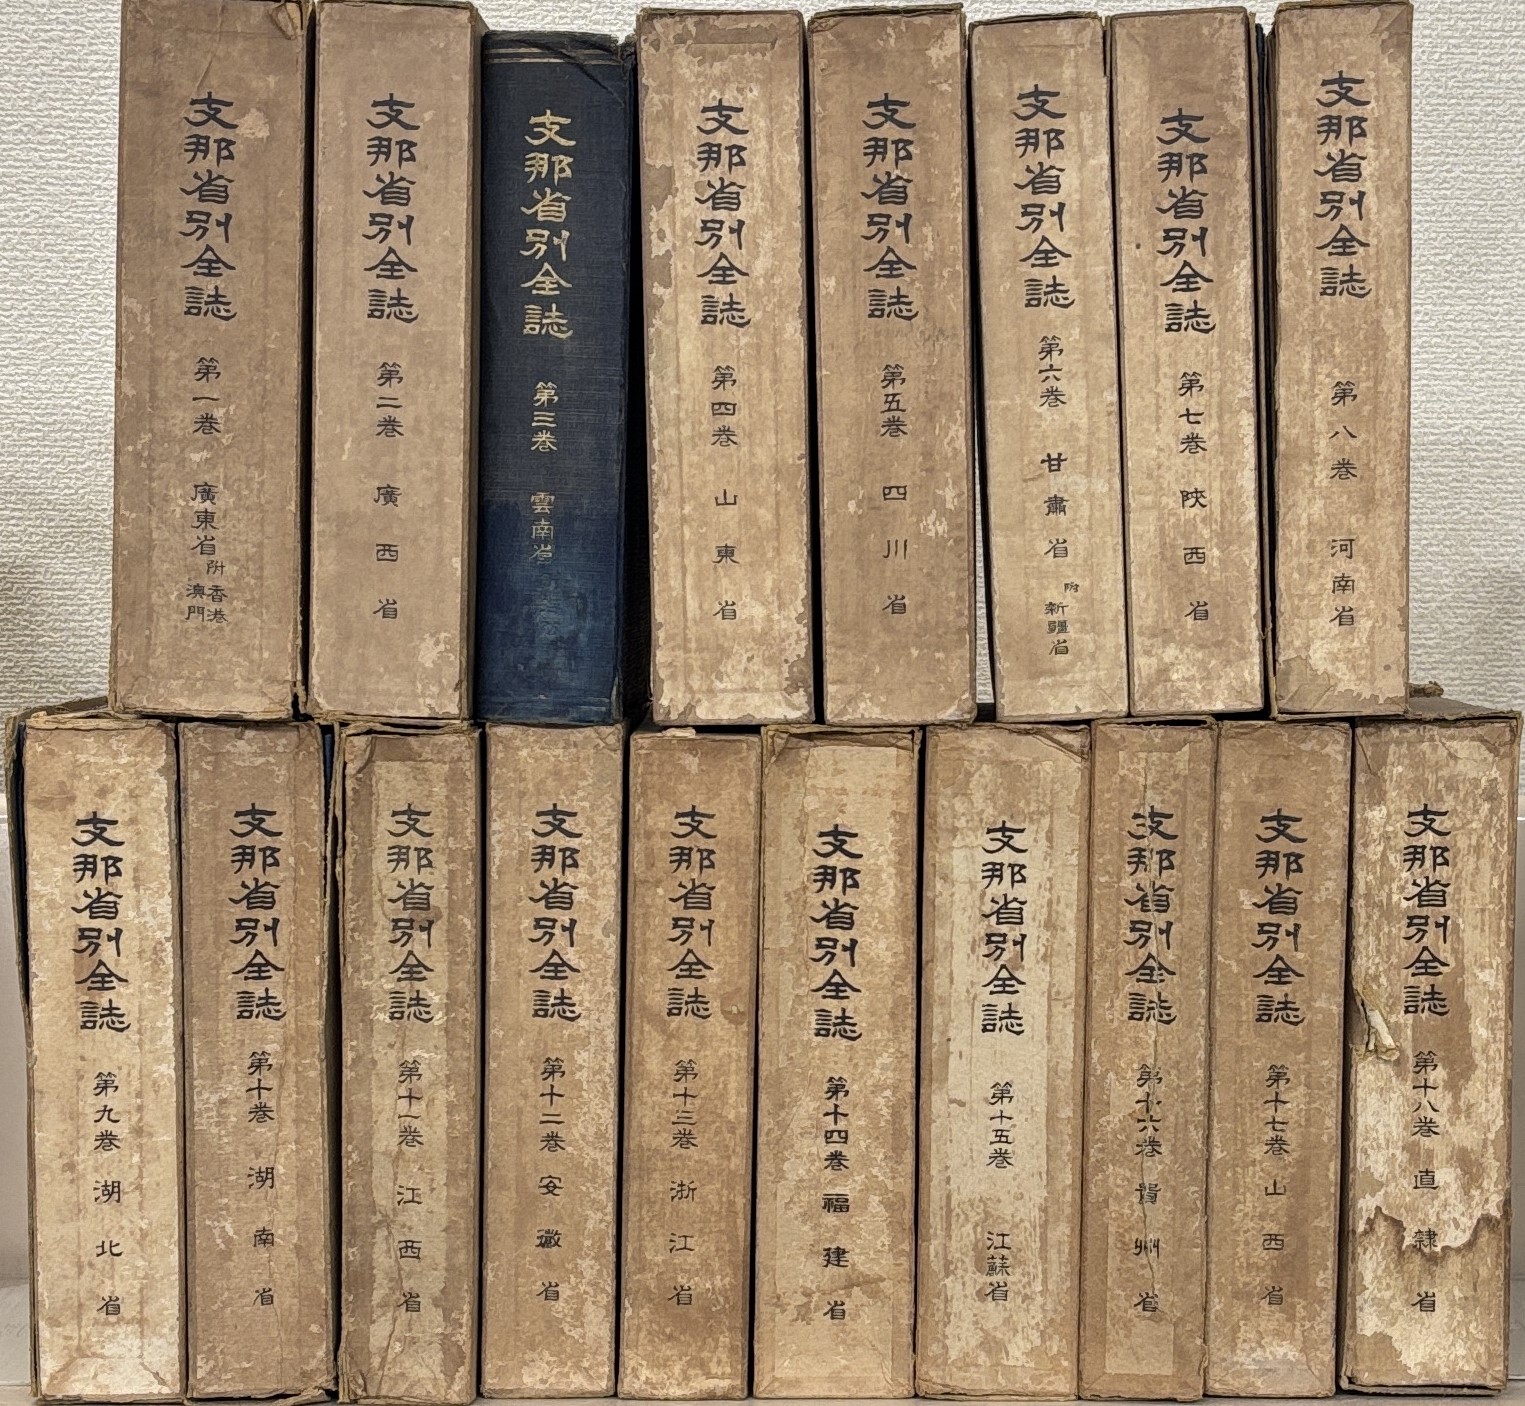 支那省別全誌 第一巻 廣東省 附 香港 澳門
支那省別全誌 第二巻 廣西省
支那省別全誌 第三巻 雲南省
支那省別全誌 第四巻 山東省
支那省別全誌 第五巻 四川省
支那省別全誌 第六巻 甘肅省 附 新疆省
支那省別全誌 第七巻 陜西省
支那省別全誌 第八巻 河南省
支那省別全誌 第九巻 湖北省
支那省別全誌 第十巻 湖南省
支那省別全誌 第十一巻 江西省
支那省別全誌 第十二巻 安徽省
支那省別全誌 第十三巻 浙江省
支那省別全誌 第十四巻 福建省
支那省別全誌 第十五巻 江蘇省
支那省別全誌 第十六巻 貴州省
支那省別全誌 第十七巻 山西省
支那省別全誌 第十八巻 直隷省